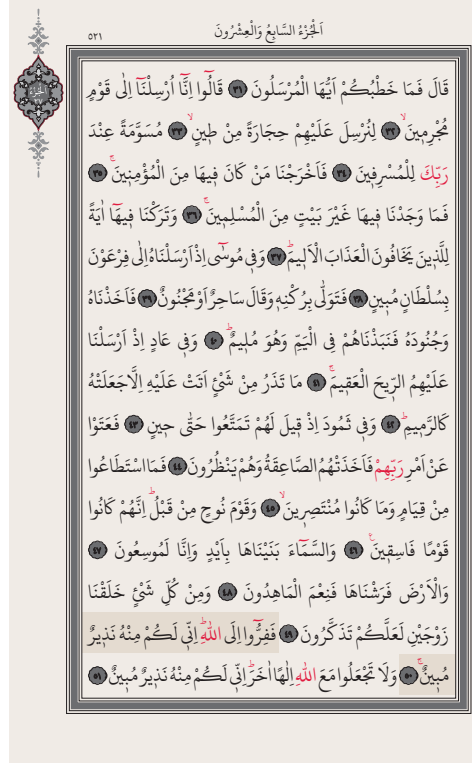 اَلْجُزْءُ السَّابِعُ وَالْعِشْرُونَ
٥٢١
اَلْجُزْءُ
٢٧
قَالَ فَمَا خَطْبُكُمْ اَيُّهَا الْمُرْسَلُونَ ﴿٣١﴾ قَالُٓوا اِنَّٓا اُرْسِلْنَٓا اِلٰى قَوْمٍ
مُجْرِم۪ينَۙ ﴿٣٢﴾ لِنُرْسِلَ عَلَيْهِمْ حِجَارَةً مِنْ ط۪ينٍۙ ﴿٣٣﴾ مُسَوَّمَةً عِنْدَ
رَبِّكَ لِلْمُسْرِف۪ينَ ﴿٣٤﴾ فَاَخْرَجْنَا مَنْ كَانَ ف۪يهَا مِنَ الْمُؤْمِن۪ينَۚ ﴿٣٥﴾
فَمَا وَجَدْنَا ف۪يهَا غَيْرَ بَيْتٍ مِنَ الْمُسْلِم۪ينَۚ ﴿٣٦﴾ وَتَرَكْنَا ف۪يهَٓا اٰيَةً
لِلَّذ۪ينَ يَخَافُونَ الْعَذَابَ الْاَل۪يمَۜ ﴿٣٧﴾ وَف۪ي مُوسٰٓى اِذْ اَرْسَلْنَاهُ اِلٰى فِرْعَوْنَ
بِسُلْطَانٍ مُب۪ينٍ ﴿٣٨﴾ فَتَوَلّٰى بِرُكْنِه۪ وَقَالَ سَاحِرٌ اَوْ مَجْنُونٌ ﴿٣٩﴾ فَاَخَذْنَاهُ
وَجُنُودَهُ فَنَبَذْنَاهُمْ فِي الْيَمِّ وَهُوَ مُل۪يمٌۜ ﴿٤٠﴾ وَف۪ي عَادٍ اِذْ اَرْسَلْنَا
عَلَيْهِمُ الرّ۪يحَ الْعَق۪يمَۚ ﴿٤١﴾ مَا تَذَرُ مِنْ شَيْءٍ اَتَتْ عَلَيْهِ اِلَّا جَعَلَتْهُ
كَالرَّم۪يمِۜ ﴿٤٢﴾ وَف۪ي ثَمُودَ اِذْ ق۪يلَ لَهُمْ تَمَتَّعُوا حَتّٰى ح۪ينٍ ﴿٤٣﴾ فَعَتَوْا
عَنْ اَمْرِ رَبِّهِمْ فَاَخَذَتْهُمُ الصَّاعِقَةُ وَهُمْ يَنْظُرُونَ ﴿٤٤﴾ فَمَا اسْتَطَاعُوا
مِنْ قِيَامٍ وَمَا كَانُوا مُنْتَصِر۪ينَۙ ﴿٤٥﴾ وَقَوْمَ نُوحٍ مِنْ قَبْلُۜ اِنَّهُمْ كَانُوا
قَوْمًا فَاسِق۪ينَ۟ ﴿٤٦﴾ وَالسَّمَٓاءَ بَنَيْنَاهَا بِاَيْدٍ وَاِنَّا لَمُوسِعُونَ ﴿٤٧﴾
وَالْاَرْضَ فَرَشْنَاهَا فَنِعْمَ الْمَاهِدُونَ ﴿٤٨﴾ وَمِنْ كُلِّ شَيْءٍ خَلَقْنَا
زَوْجَيْنِ لَعَلَّكُمْ تَذَكَّرُونَ ﴿٤٩﴾ فَفِرُّٓوا اِلَى اللّٰهِۜ اِنّ۪ي لَكُمْ مِنْهُ نَذ۪يرٌ
مُب۪ينٌۚ ﴿٥٠﴾ وَلَا تَجْعَلُوا مَعَ اللّٰهِ اِلٰهًا اٰخَرَۜ اِنّ۪ي لَكُمْ مِنْهُ نَذ۪يرٌ مُب۪ينٌ ﴿٥١﴾